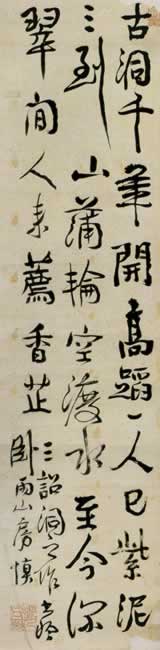 古洞千年開高蹈一人已紫泥
三到山蒲輪空渡水至今深
翠間人來薦香芷
三詔洞作
臥雨山房